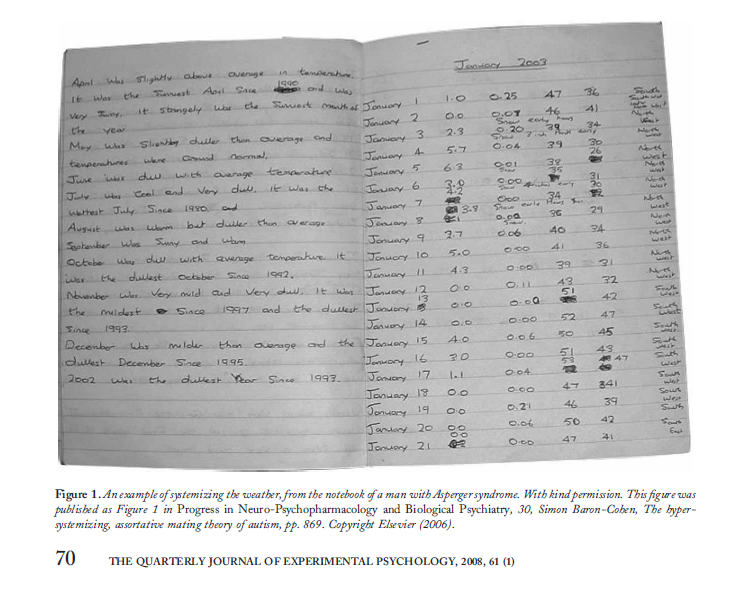 April was slightly above average in temperature.
It was the sunniest April since 1990 and was
very sunny, it strangely was the sunniest month of
the year
May was slightly duller than average and
temperatures were around normal,
June was dull with average temperature
July was cool and very dull. It was the
wettest July since 1980. and
August was warm but duller than average
September was sunny and warm
October was dull with average temperature. It
was the dullest October since 1992.
November was very mild and very dull. It was
the mildest since 1997 and the dullest
since 1993.
December was milder than average and the
dullest December since 1995.
2002 was the dullest year since 1993.
January 2003
January 1 1.0 0.25 47 36 South
January 2 0.0 0.07 46 41
January 3 2.3 0.20 39 34 North
January 4 5.7 0.04 39 30 North
January 5 6.3 0.01 38 26 North West
January 6 0.00 35 31 North West
January 7 3.8 0.00 34 30 North West
January 8 0.00 36 29 North West
January 9 3.7 0.06 40 34 North West
January 10 5.0 0.00 41 36
January 11 4.3 0.00 39 31 North West
January 12 0.0 0.11 43 32 South West
January 13 0.0 0.00 51 42
January 14 0.0 0.00 52 47 South West
January 15 4.0 0.06 50 45 South West
January 16 3.0 0.00 51 43 South West
January 17 1.1 0.04 53 47
January 18 0.0 0.00 47 341 South West
January 19 0.0 0.21 46 39 South
January 20 0.0 0.06 50 42 South
January 21 0.0 0.00 47 41 East
Figure 1. An example of systemizing the weather, from the notebook of a man with Asperger syndrome. With kind permission. This figure was
published as Figure 1 in Progress in Neuro-Psychopharmacology and Biological Psychiatry, 30, Simon Baron-Cohen, The hyper-
systemizing, assortative mating theory of autism, pp. 869. Copyright Elsevier (2006).
70 THE QUARTERLY JOURNAL OF EXPERIMENTAL PSYCHOLOGY, 2008, 61 (1)